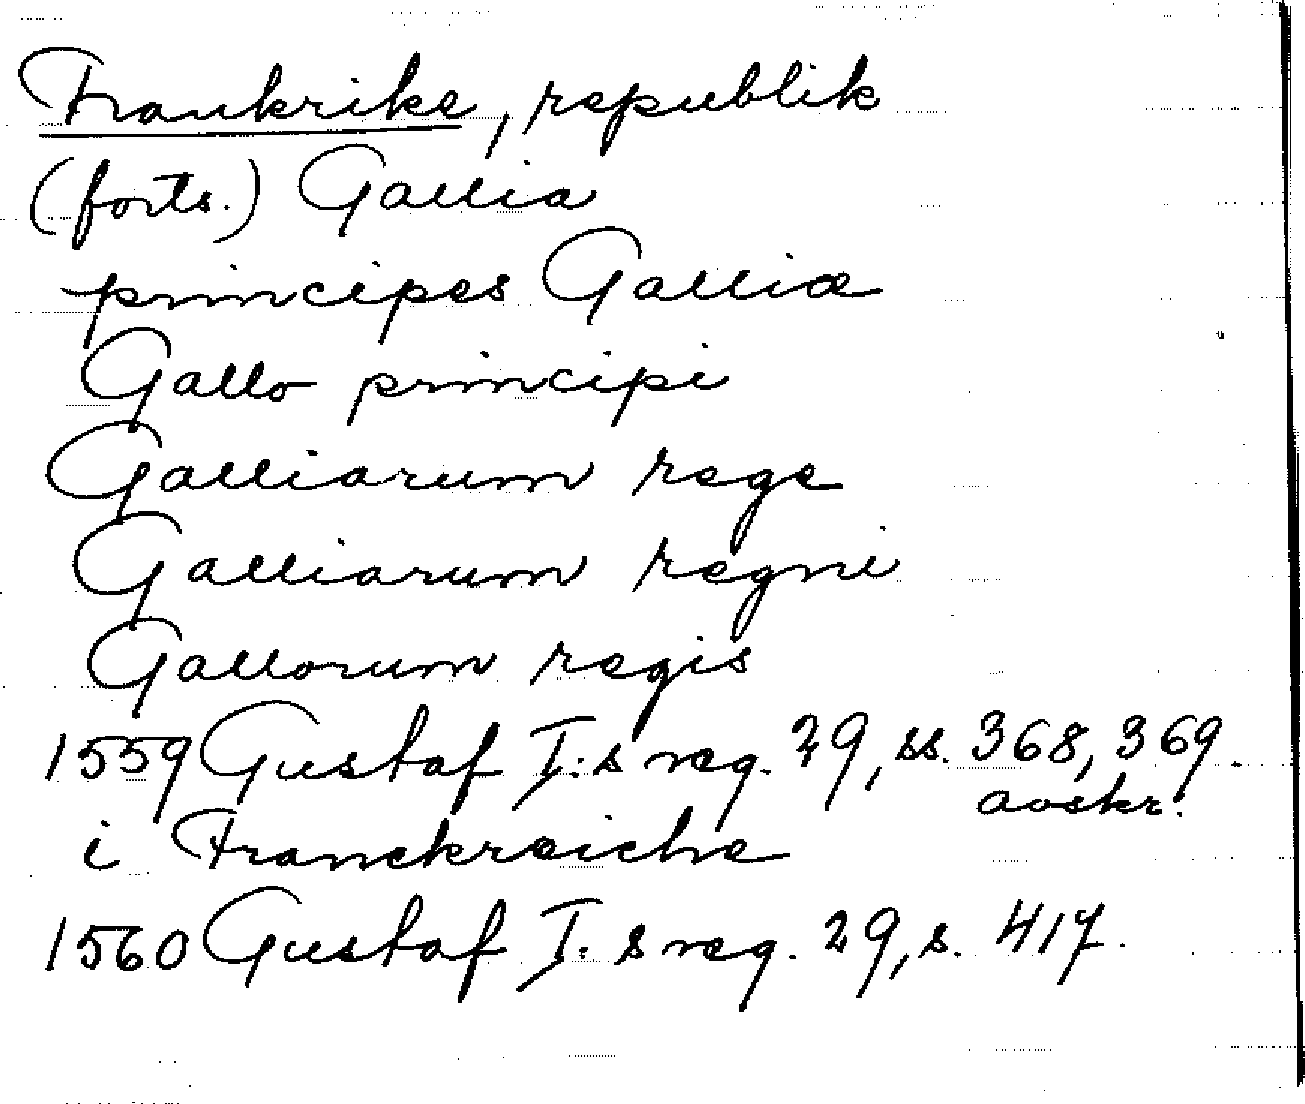 Frankrike, republik
(forts.) Gallia
principes Galliæ
Gallo principi
Galliarum rege
Galliarum regni
Gallorum regis
1559 Gustaf I:s reg. 29, ss. 368, 369.
avskr.
i Franckreiche
1560 Gustaf I:s reg. 29, s. 417.